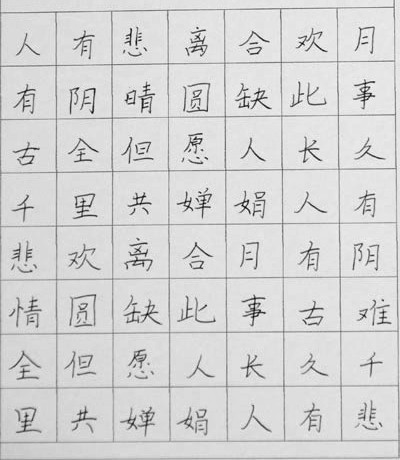 人有悲离合欢月
有阴晴圆缺此事
古全但愿人长久
千里共婵娟人有
悲欢离合月有阴
情圆缺此事古难
全但愿人长久千
里共婵娟人有悲